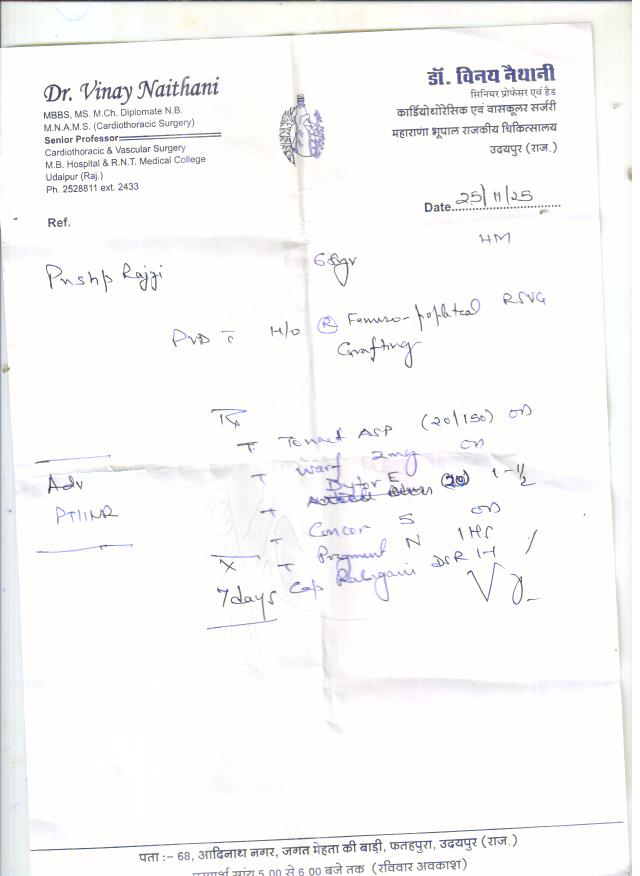 Dr. Vinay Naithani
MBBS, MS. M.Ch. Diplomate N.B.
M.N.A.M.S. (Cardiothoracic Surgery)
Senior Professor
Cardiothoracic & Vascular Surgery
M.B. Hospital & R.N.T. Medical College
Udaipur (Raj.)
Ph. 2528811 ext. 2433
डॉ. विनय नैथानी
सिनियर प्रोफेसर एवं हैड
कार्डियोथोरेसिक एवं वासकूलर सर्जरी
महाराणा भूपाल राजकीय चिकित्सालय
उदयपुर (राज.)
Date 25/11/25
Ref.
HM
Pushp Rajji 68yr
PVD c H/O (R) Femoro-popliteal RSVG
Grafting
Rx
T. Tonact ASP (20/150) OD
T Warf 2mg OD
T Dytor E (20) 1-1/2
T Concor 5 OD
T N 1 HS
Cap DSR 1-1
Adv
PT/INR
X
7days
पता :- 68, आदिनाथ नगर, जगत मेहता की बाड़ी, फतहपुरा, उदयपुर (राज.)
सांय 5.00 से 6.00 बजे तक (रविवार अवकाश)